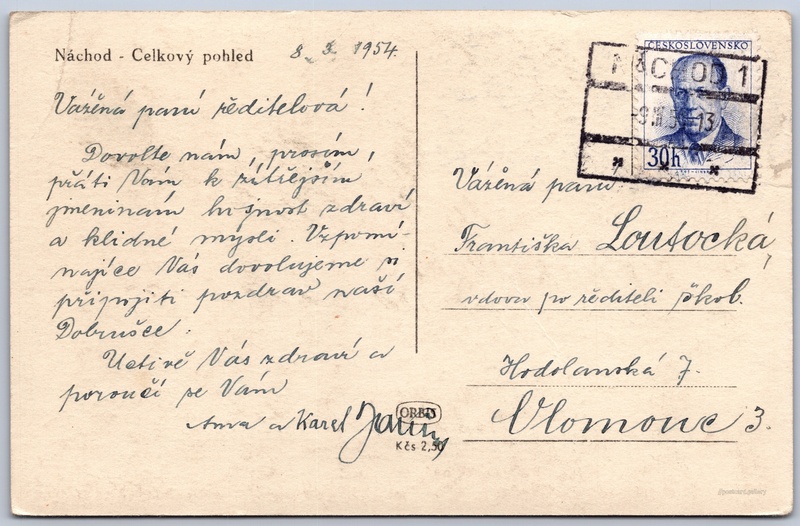 Náchod - Celkový pohled
8. 3. 1954.
Vážěná paní ředitelová!
Dovolte nám, prosím,
přáti Vám k zítřejším
jmeninám hojnost zdraví
a klidné mysli. Vzpomí-
najíce Vás dovolujeme si
připojiti pozdrav naší
Dobrušce.
Uctivě Vás zdraví a
poroučí se Vám
Anna a Karel
ORBIS
Kčs 2,50
ČESKOSLOVENSKO
30h
NÁCHOD 1
Vážěná paní
Františka Loutocká,
vdova po řediteli škol.
Hodolanská 7.
Olomouc 3.